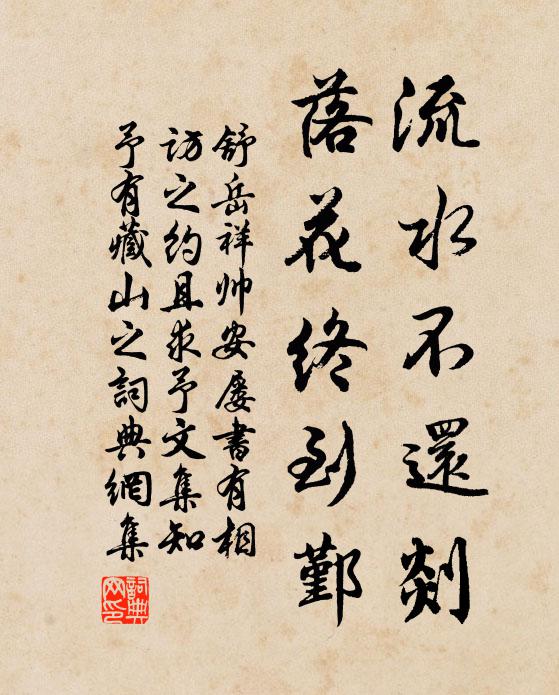 流水不還剡
落花終到鄞
舒岳祥帅安屡書有相
訪之約且求予文集知
予有藏山之詞典網集
詞典網印